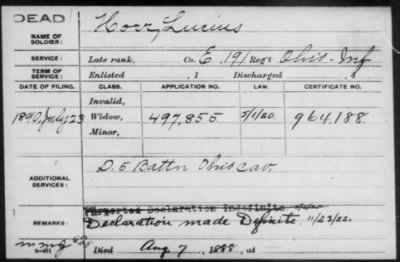 DEAD
NAME OF SOLDIER: Horr, Lucius
SERVICE: Late rank, Co. E, 191 Reg't Ohio Inf
TERM OF SERVICE: Enlisted , 1 Discharged , 1
DATE OF FILING. CLASS. APPLICATION NO. LAW. CERTIFICATE NO.
Invalid,
1890, July 23 Widow, 497,855 5/1/20. 964,188
Minor,
ADDITIONAL SERVICES: D. 5 Battn Ohio Cav.
Declaration Indefinite
REMARKS: Declaration made Definite 11/23/22.
Died Aug 7, 1888, at